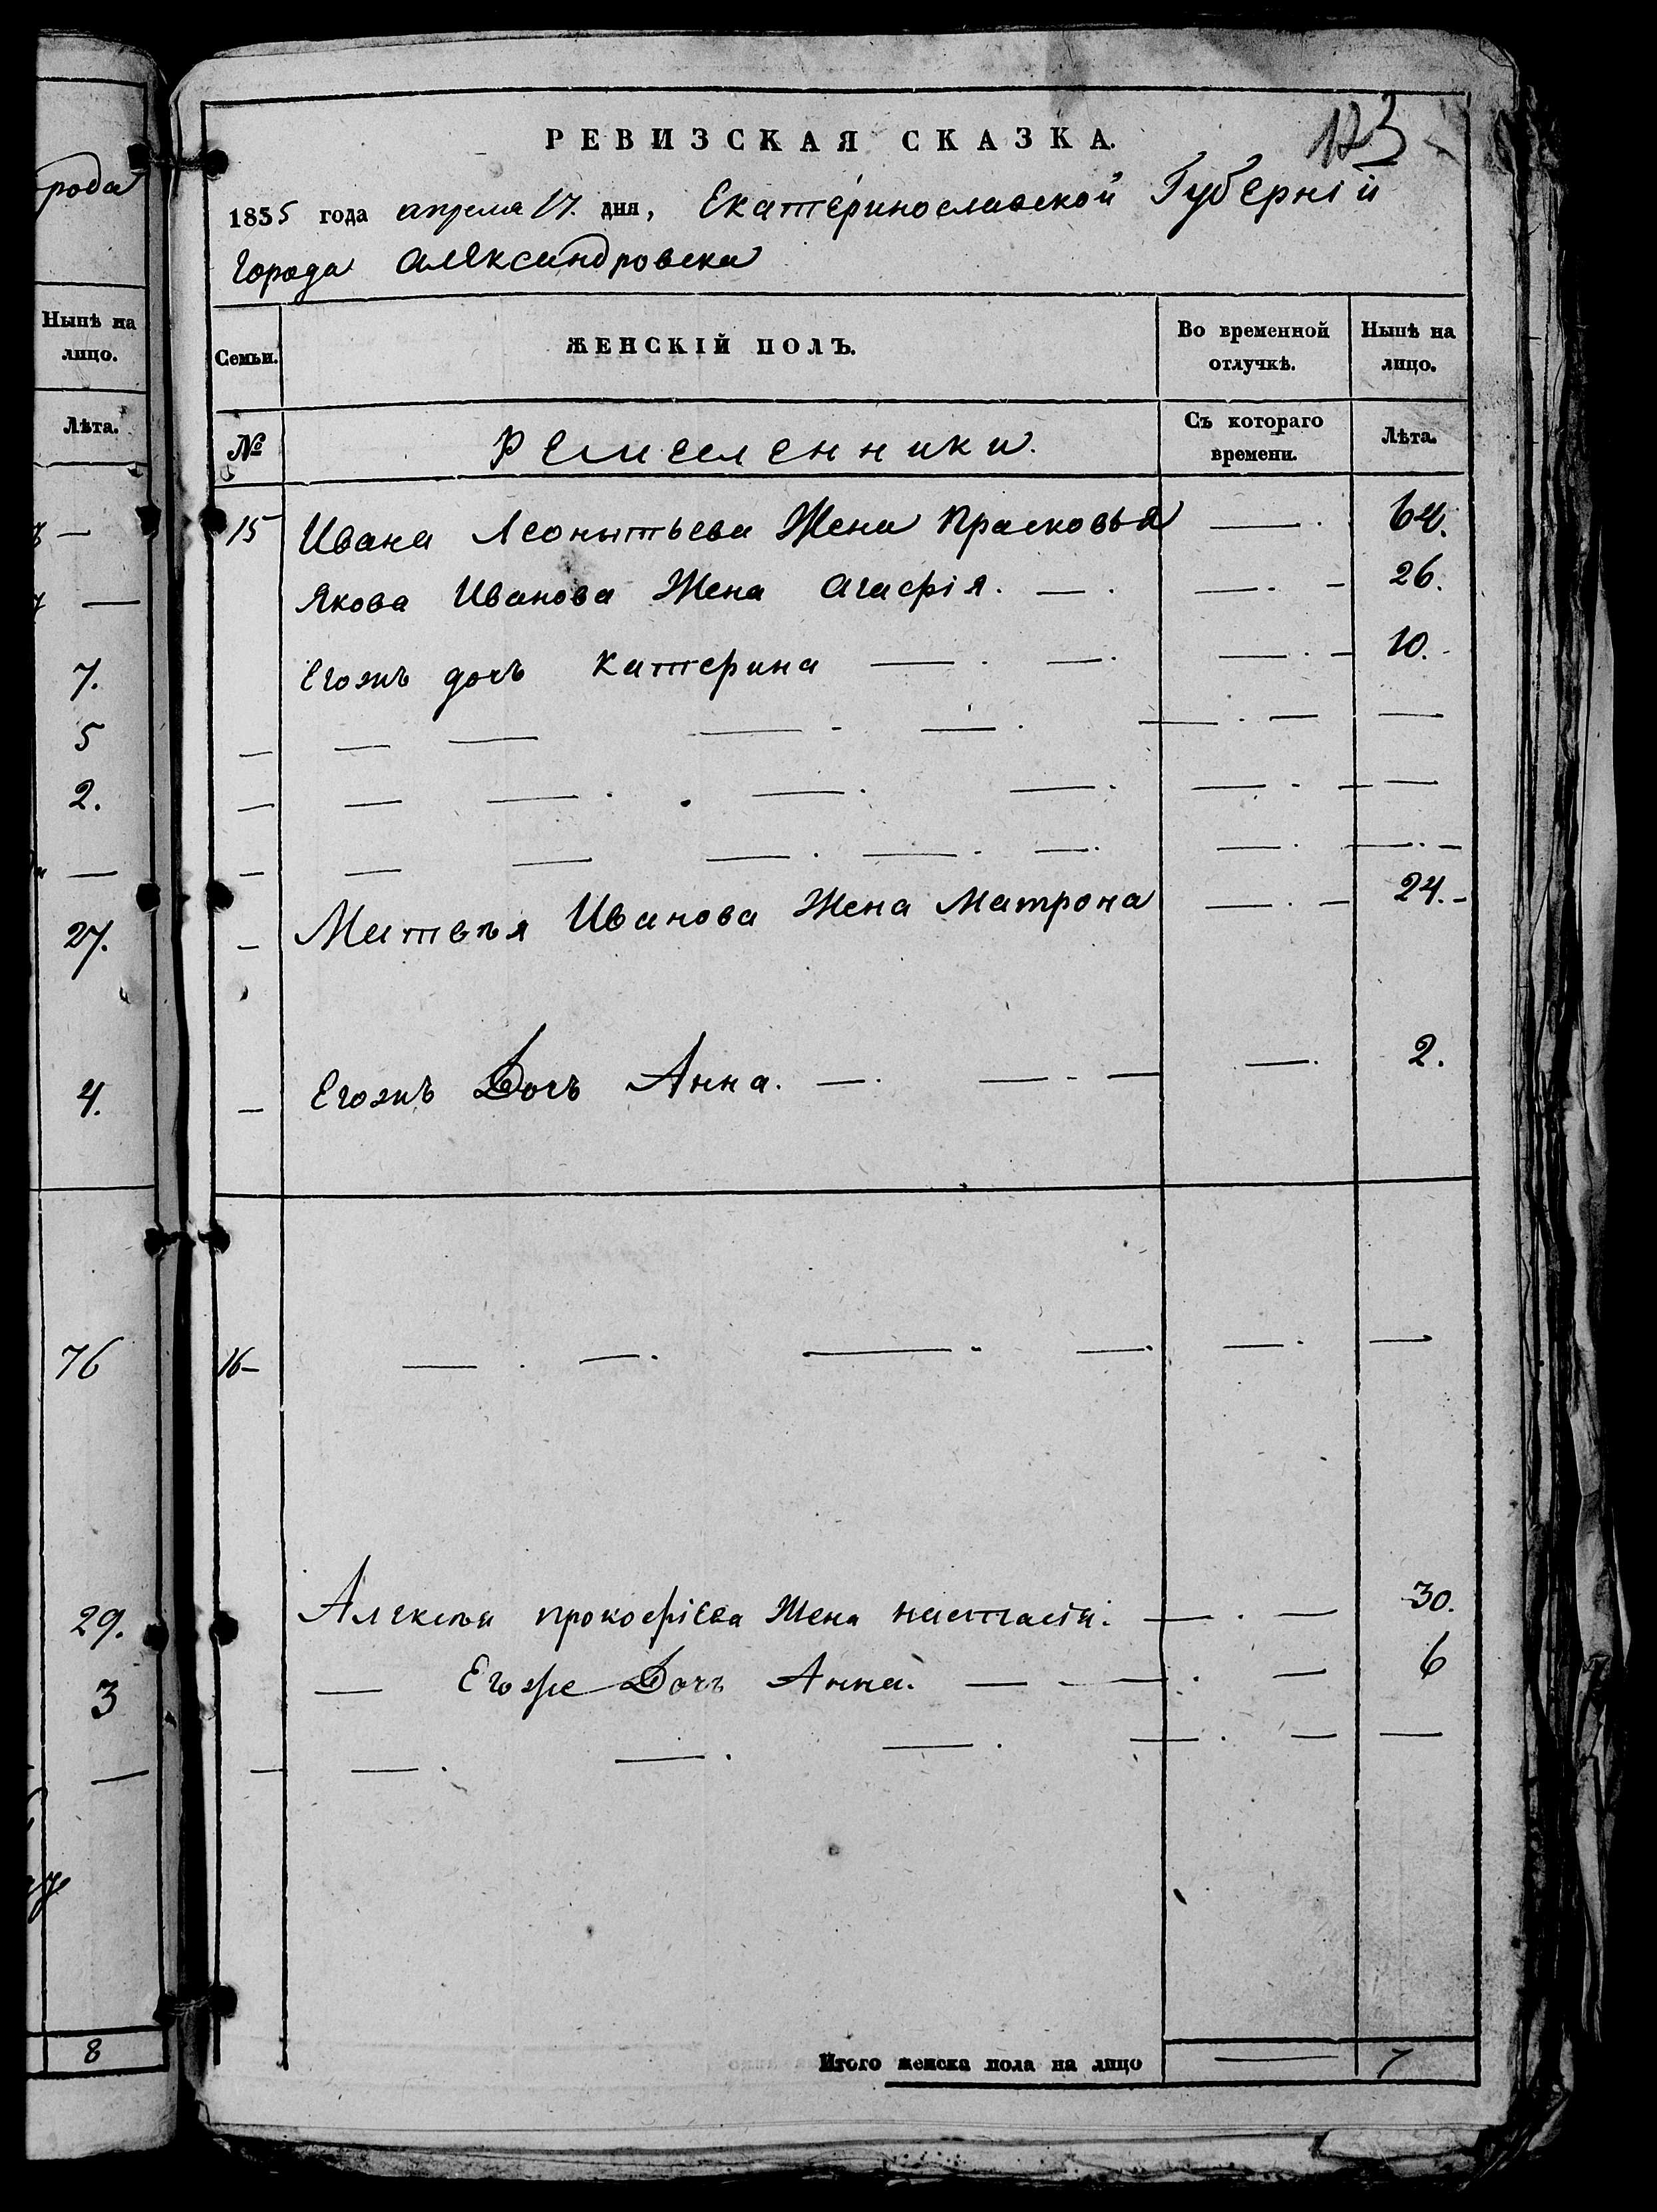 рода
Нынѣ на
лицо.
Лѣта.
7.
5
2.
27.
4.
76
29.
3
8
123
РЕВИЗСКАЯ СКАЗКА.
1835 года апреля 17. дня, Екатеринославской Губерніи
города Александровска
Семьи. ЖЕНСКІЙ ПОЛЪ. Во временной отлучкѣ. Нынѣ на лицо.
№ Ремесленники. Съ котораго времени. Лѣта.
15 Ивана Леонытьева Жена Прасковья — . 64.
Якова Иванова Жена Агафія. — . — . — 26.
Егожъ дочъ Катерина — . — . — . — 10.
Матвѣя Иванова Жена Матрона — . — 24. –
Егожъ Дочъ Анна. — . — . — — . 2.
16 – — . — . — . — . — . —
Алексѣя прокофіева Жена настасія. — . — 30.
— Егоже Дочъ Анна. — . — . — 6
Итого женска пола на лицо — 7